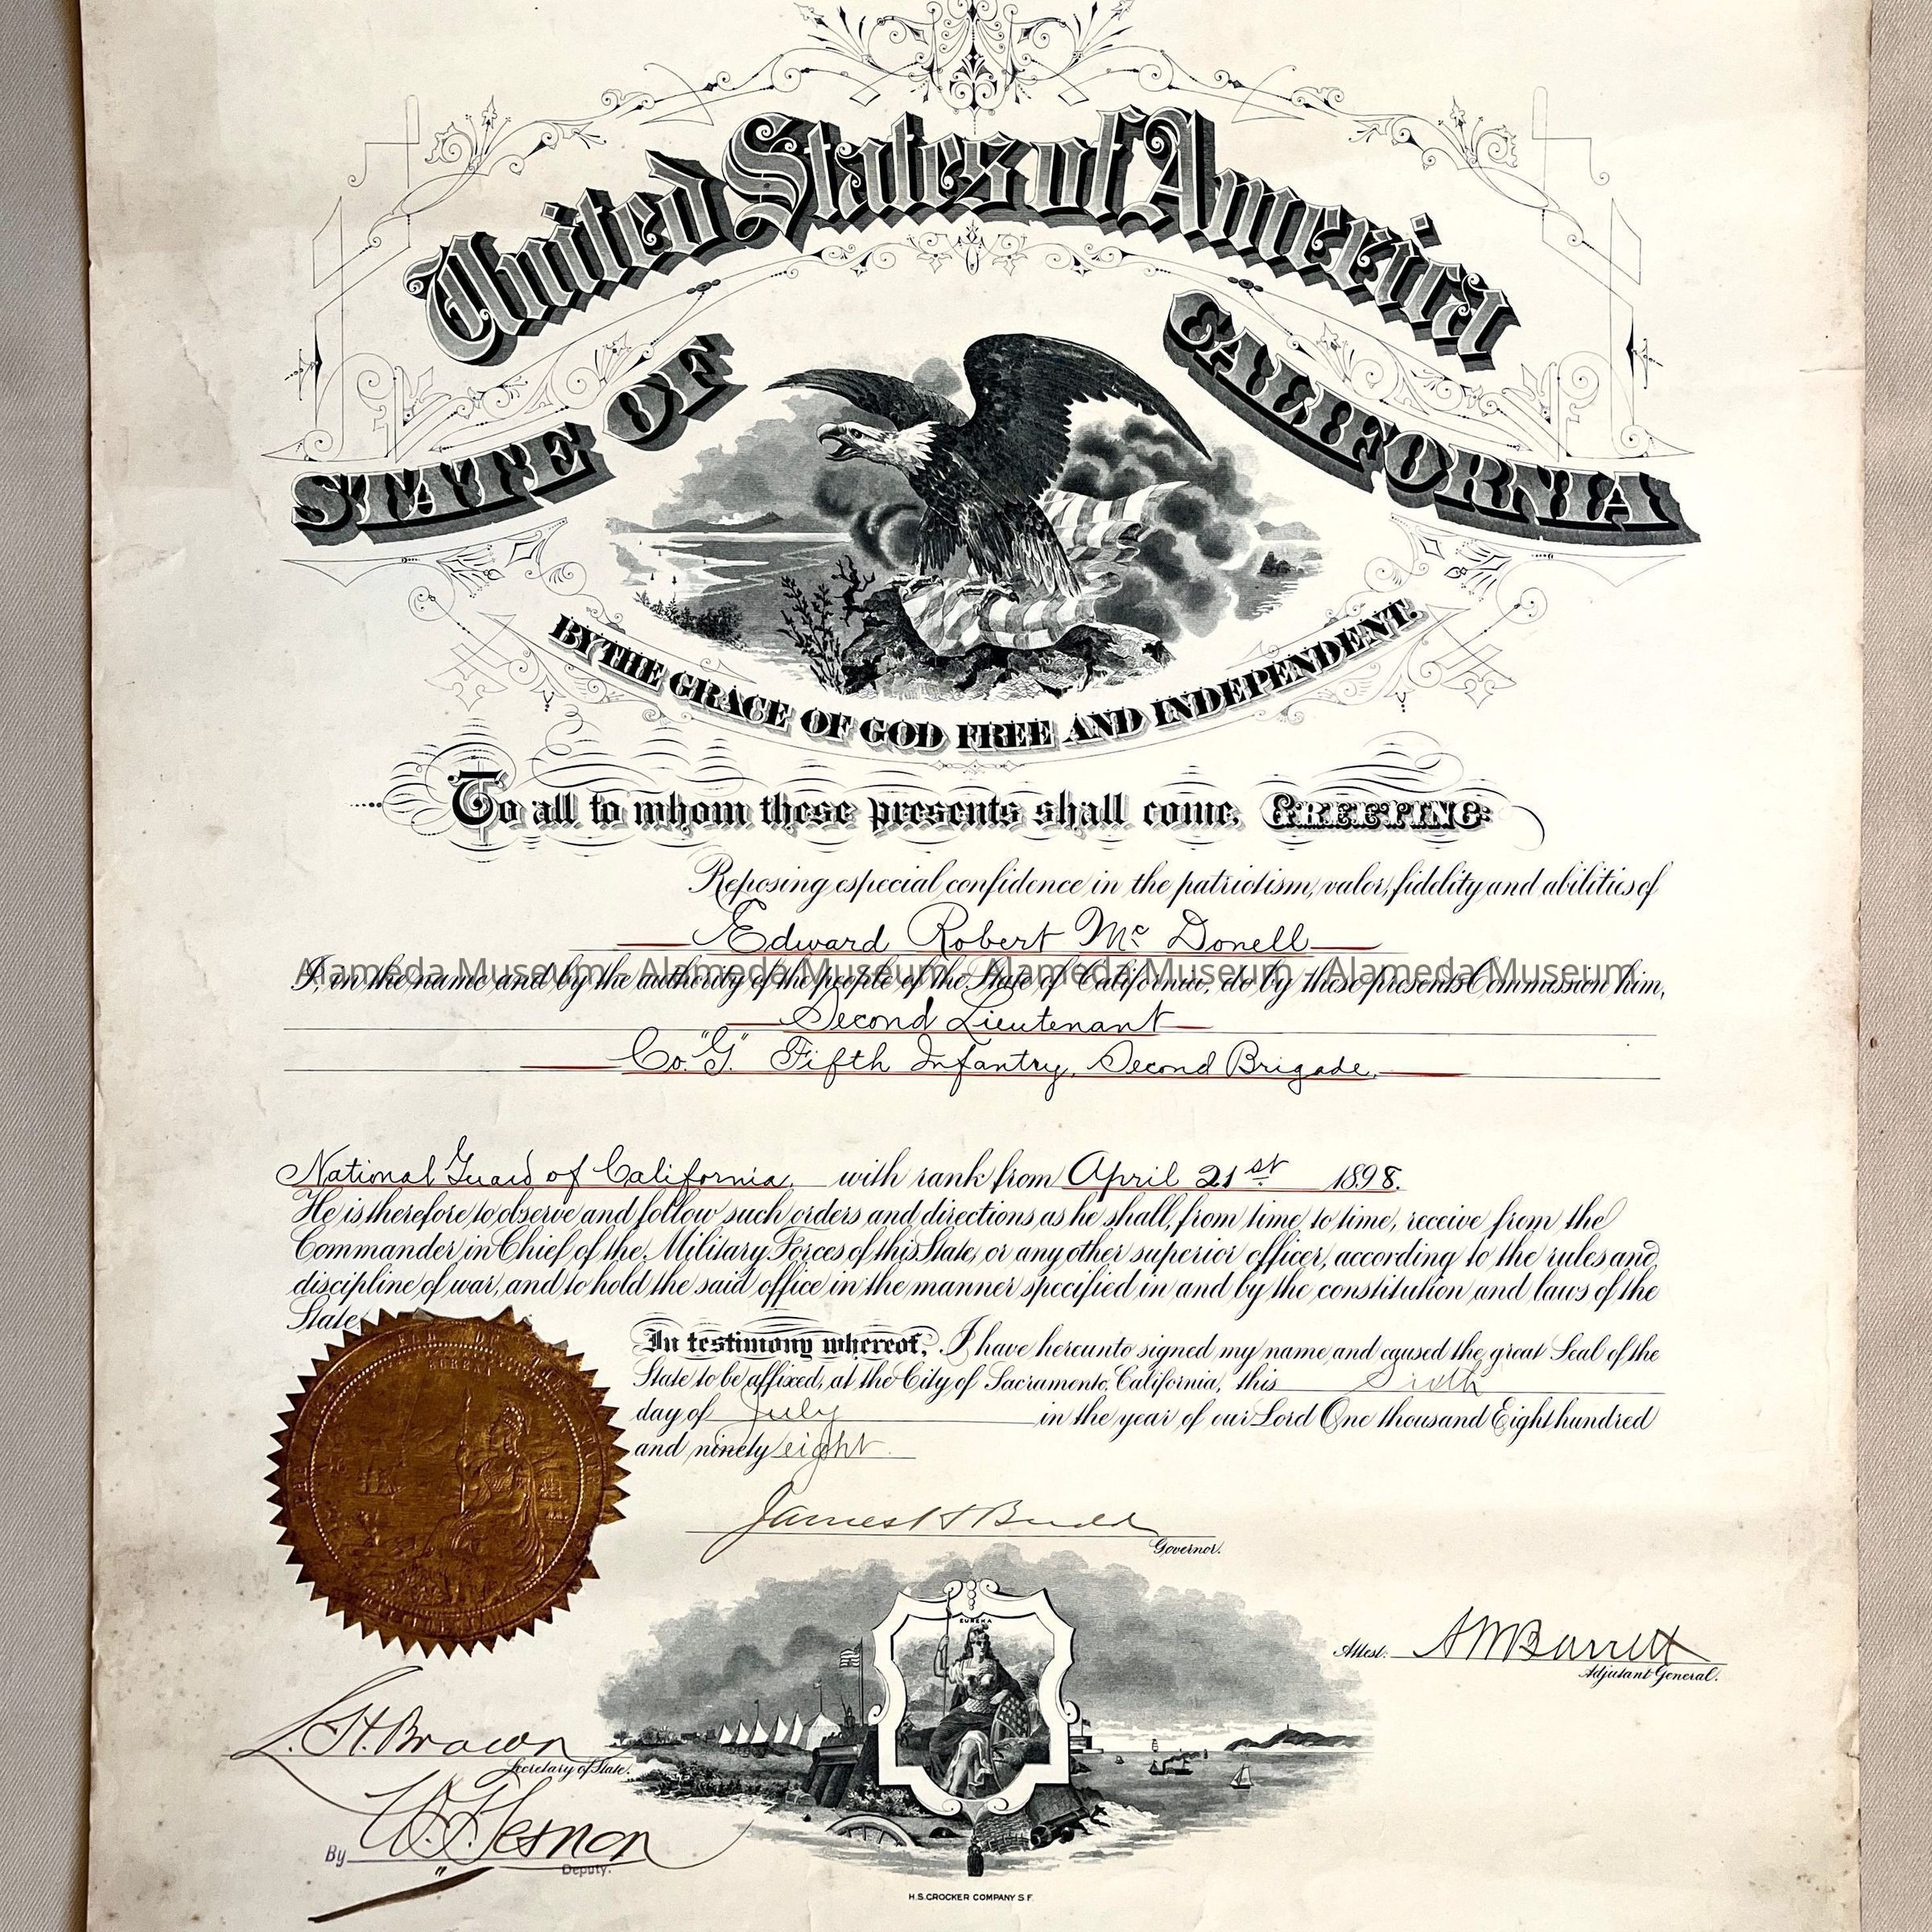 United States of America
STATE OF CALIFORNIA
BY THE GRACE OF GOD FREE AND INDEPENDENT.
To all to whom these presents shall come, GREETING:
Reposing especial confidence in the patriotism, valor, fidelity and abilities of
Edward Robert Mc Donell
I, in the name and by the authority of the people of the State of California, do by these presents Commission him,
Alameda Museum - Alameda Museum - Alameda Museum - Alameda Museum
Second Lieutenant
Co. "G" Fifth Infantry, Second Brigade,
National Guard of California, with rank from April 21st 1898.
He is therefore to observe and follow such orders and directions as he shall, from time to time, receive from the
Commander in Chief of the Military Forces of this State, or any other superior officer, according to the rules and
discipline of war, and to hold the said office in the manner specified in and by the constitution and laws of the
State.
In testimony whereof, I have hereunto signed my name and caused the great Seal of the
State to be affixed, at the City of Sacramento, California, this Sixth
day of July in the year of our Lord One thousand Eight hundred
and ninety eight.
James H Budd
Governor.
EUREKA
Attest. A W Barrett
Adjutant General.
L. H. Brown
Secretary of State.
By
Deputy.
H.S. CROCKER COMPANY S.F.